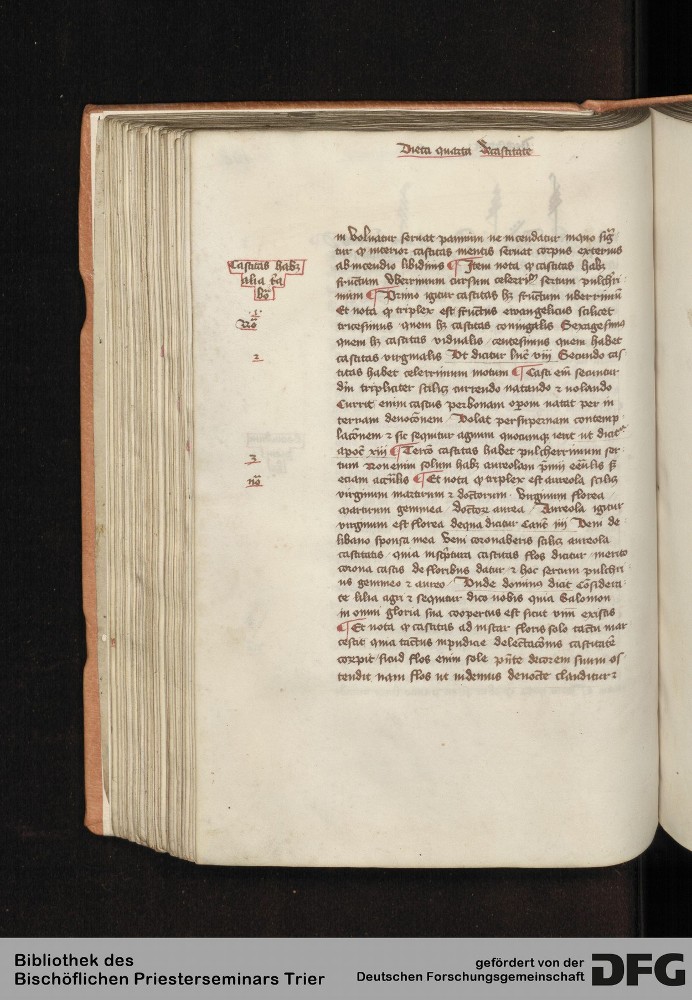 Dieta quarta De castitate
in voluatur seruat pannum ne incendatur
tur ꝙ interior castitas mentis seruat corpus exterius
ab incendio libidinis ¶ Item nota ꝙ castitas habꝫ
fructum vberrimum cursum sertum pulcherri
mum ¶ Primo igitur castitas hꝫ fructum uberrimū
Et nota ꝙ triplex est fructus ewangelicus scilicet
tricesimus quem hꝫ castitas coniugalis Sexagesimus
quem hꝫ castitas vidualis centesimus quem habet
castitas virginalis Vt dicitur luc̄ viij Secundo cas
titas habet celerrimum motum ¶ Casti em̄ secuntur
dm̄ tripliciter scilicꝫ currendo natando et uolando
Currit enim castus per bonam natat per in
ternam deuoc̄onem Volat per supernam contemp
lac̄onem et sic sequitur agnum quocunqꝫ ierit ut dicit
apoc̄ xiiij ¶ Terc̄o castitas habet pulcherrimum ser
tum Non enim solum habꝫ aureolam sꝫ
eciam ¶ Et nota ꝙ triplex est aureola scilicꝫ
virginum martirum et doctorum Virginum florea
martirum gemmea doctorꝫ aurea Aureola igitur
virginum est florea de qua dicitur Cant̄ iiij Veni de
libano sponsa mea Veni coronaberis scilicꝫ aureola
castitatis quia in scriptura castitas flos dicitur merito
corona castis de floribus datur et hoc sertum pulchri
us gemmeo et aureo Vnde dominus dicit Considera
te lilia agri et sequitur dico vobis quia Salomon
in omni gloria sua coopertus est sicut vnū ex istis
¶ Et nota ꝙ castitas ad instar floris solo tactu mar
cescit quia tactus inpudice delectac̄onis castitatē
corrpit sicud flos enim sole pn̄te decorem suum os
tendit nam flos ut uidemus de nocte clauditur et
Castitas habꝫ
alia
bō
.1.
Nō
2
3
nō
Bibliothek des
Bischöflichen Priesterseminars Trier
gefördert von der
Deutschen Forschungsgemeinschaft
DFG